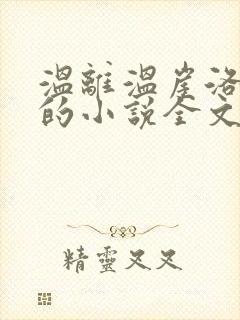 溫離溫崖洛
的小說全文
精靈又又